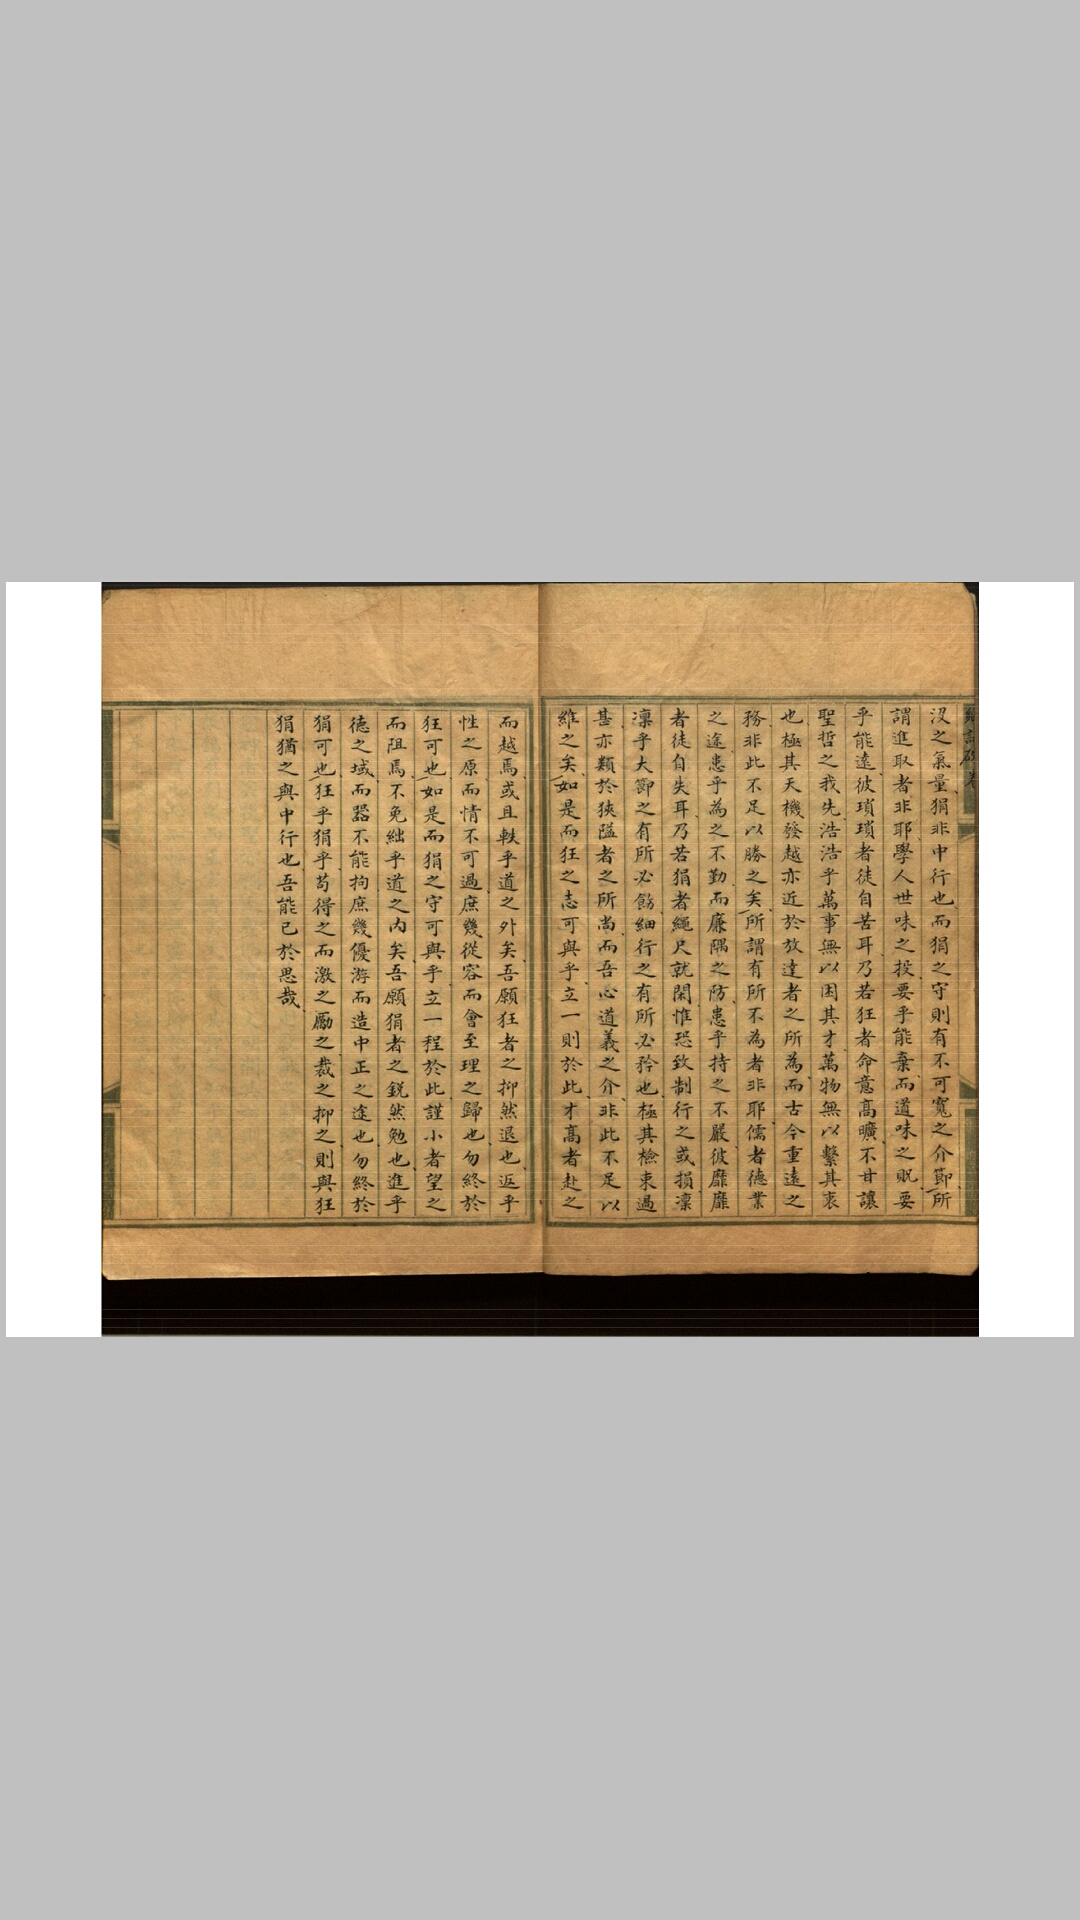 沒之氣量狷非中行也而狷之守則有不可寬之介節所
謂進取者非耶學人世味之投要乎能棄而道味之耽要
乎能遠彼瑣瑣者徒自苦耳乃若狂者命意高曠不甘讓
聖哲之我先浩浩乎萬事無以困其才萬物無以繫其衷
也極其天機發越亦近於放達者之所為而古今重遠之
務非此不足以勝之矣所謂有所不為者非耶儒者德業
之途患乎為之不勤而廉隅之防患乎持之不嚴彼靡靡
者徒自失耳乃若狷者繩尺就閑惟恐致制行之或損凜
凜乎大節之有所必飭細行之有所必矜也極其檢束過
甚亦類於狹隘者之所尚而吾心道義之介非此不足以
維之矣如是而狂之志可與乎立一則於此才高者赴之
而越焉或且軼乎道之外矣吾願狂者之抑然退也返乎
性之原而情不可過庶幾從容而會至理之歸也勿終於
狂可也如是而狷之守可與乎立一程於此謹小者望之
而阻焉不免絀乎道之內矣吾願狷者之銳然勉也進乎
德之域而器不能拘庶幾優游而造中正之途也勿終於
狷可也狂乎狷乎苟得之而激之勵之裁之抑之則與狂
狷猶之與中行也吾能已於思哉